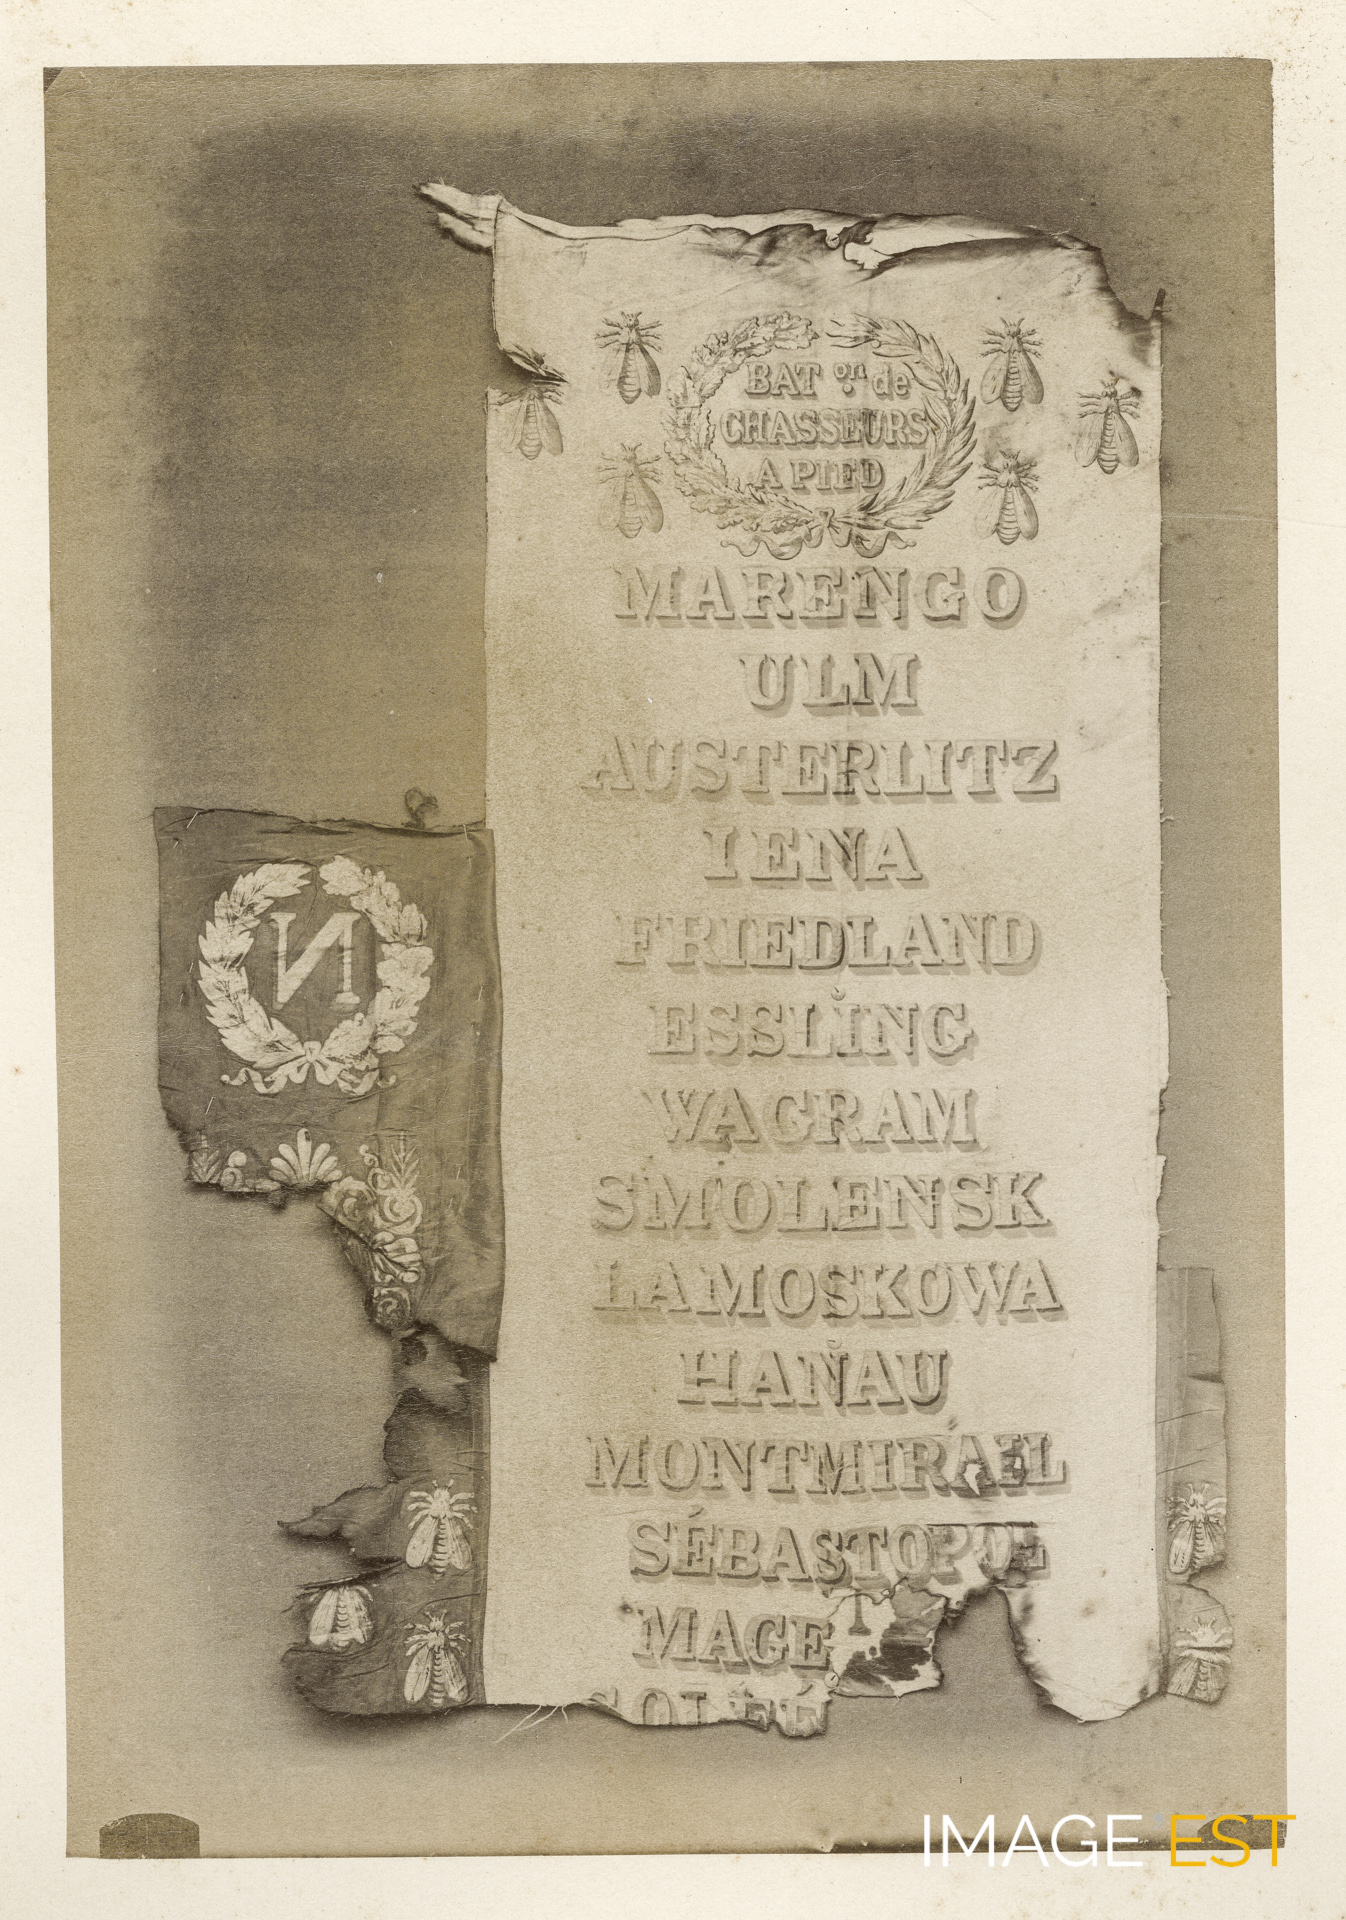 BAT on. de
CHASSEURS
A PIED
MARENGO
ULM
AUSTERLITZ
IENA
FRIEDLAND
ESSLING
WAGRAM
SMOLENSK
LA MOSKOWA
HANAU
MONTMIRAIL
SÉBASTOPOL
MAGE T
N
IMAGE EST